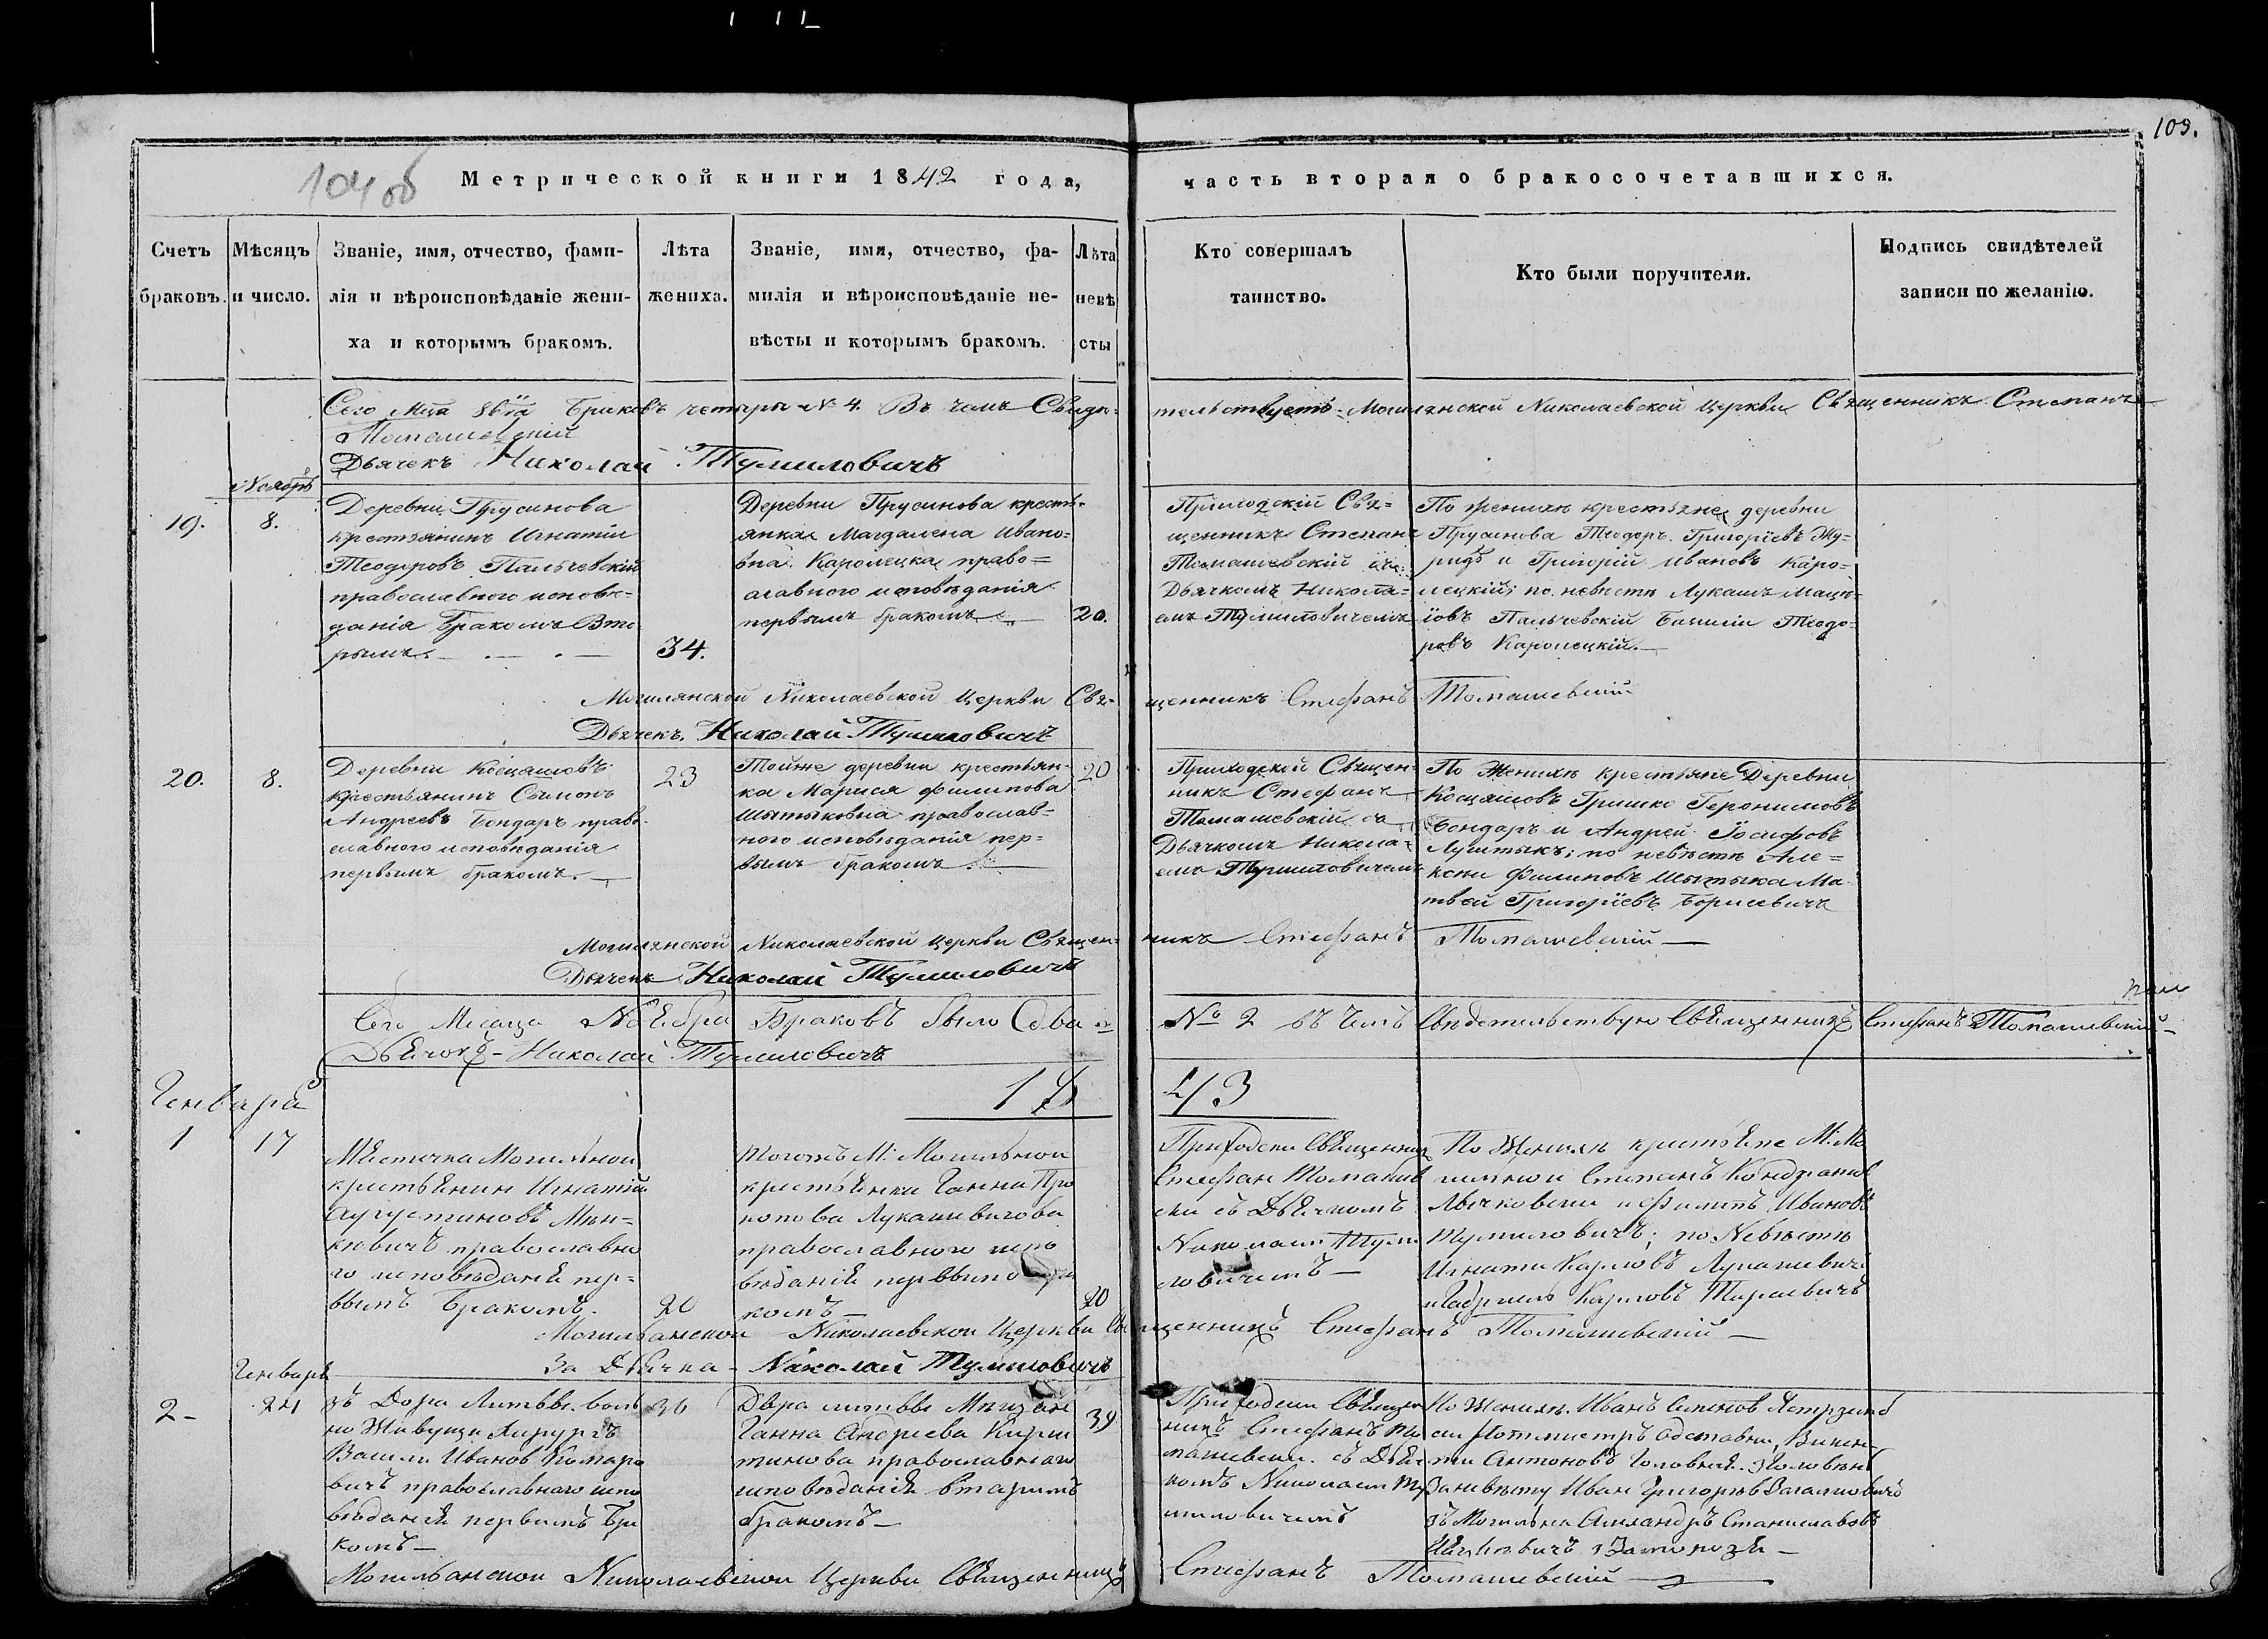 109.
104 об
Метрической книги 1842 года,
часть вторая о бракосочетавшихся.
Счетъ
браковъ.
Мѣсяцъ
и число.
Званіе, имя, отчество, фами-
лія и вѣроисповѣданіе жени-
ха и которымъ бракомъ.
Лѣта
жениха.
Званіе, имя, отчество, фа-
милія и вѣроисповѣданіе не-
вѣсты и которымъ бракомъ.
Лѣта
невѣ
сты
Кто совершалъ
таинство.
Кто были поручители.
Подпись свидѣтелей
записи по желанію.
Сего Браковъ четыри №4. Въ чемъ Свидѣ-
тельствуетъ Могилянской Николаевской Церкви Священникъ Степанъ
Томашевскій
Дьячекъ Николай Тумиловичъ
Ноябрь
19.
8.
Деревни Прусинова
крестьянинъ Игнатій
Теодоровъ Пальчевскій
православного исповѣ-
данія бракомъ Вто
рымъ.
34.
Деревни Прусинова кресть-
янка Магдалена Ивано-
вна Каролецка право-
славного исповѣданія
первымъ бракомъ
20.
Приходскій Свя-
щенникъ Степанъ
Томашевскій съ
Дьячкомъ Никола-
емъ Тумиловичемъ
По женихѣ крестьяне деревни
Прусинова Теодоръ Григоріевъ Жу-
ридъ и Григорій Ивановъ Каро-
лецкій; по невѣстѣ Лукашъ Мацѣ-
іовъ Пальчевскій Базилій Теодо-
ровъ Каролецкій.
Могилянской Николаевской Церкви Свя-
щенникъ Стефанъ Томашевскій
Дьячекъ Николай Тумиловичъ
20.
8.
Деревни Косцяшовъ
Крестьянинъ Сымонъ
Андреевъ Бондаръ право-
славного исповѣданія
первымъ бракомъ.
23
Тойже деревни крестьян-
ка Марися Филипова
Шытыковна православ-
ного исповѣданія пер-
вымъ бракомъ.
20
Приходской Священ-
никъ Стефанъ
Томашевскій съ
Дьячкомъ Никола-
емъ Тумиловичемъ
По Женихѣ крестьяне Деревни
Косцяшовъ Гришко Геронимовъ
Бондаръ и Андрей Іосифовъ
Луштыкъ; по невѣстѣ Але-
ксы Филиповъ Шытыка Ма-
твей Григоріевъ Борисевичъ
Могилянской Николаевской Церкви Священ-
никъ Стефанъ Томашевскій
Дьячекъ Николай Тумиловичъ
Сего Месяца Ноебра Браковъ было Два
№ 2 въ чемъ Свѣдетельствую Свѣщенникъ Стефанъ Томашевскій
Дьечокъ - Николай Тумиловичъ
18 43
Генвара
1
17
Мѣстечка Могильнои
кристьенин Игнатій
Аугустиновъ Мин-
кевичъ православно
го исповѣданія пер-
вымъ Бракомъ.
20
Тогожъ М: Могильнои
кристьенка Ганна Про
копова Лукашевичова
православного испо
вѣданія первымъ Бра
комъ
20
Приходски Свещенник
Стефан Томашев
ски съ Дьечкомъ
Николаем Туми
ловичемъ
По Женихѣ кристьене М: Мо
гильнои Степанъ Кондратов
Лычковски и Филипъ Ивановъ
Тумиловичъ; по Невѣстѣ
Игнати Карловъ Лукашевич
и Габриель Карловъ Тарасевичъ
Могильанскои Николаевскои Церкви Све
щенникъ Стефанъ Томашевскій
За Дьячка - Николай Тумиловичъ
Генварь
2-
24
зъ Дора Литвы воль
но Живущи Хирургъ
Васили Иванов Комаро
вичъ православнаго испо
вѣданія первымъ Бра
комъ
36
Двора литвы Мещан
Ганна Андреева
православнаго
исповѣданія вторимъ
Бракомъ
39
Приходски Свещен
никъ Стефанъ То
машевски съ Дьеч
комъ Николаем Ту
миловичемъ
По Женихѣ Иванъ Семенов Ястрземб
ски Ротмистръ Одставни, Викен-
ти Антоновъ Головня
Занивѣсту Иван Григорев
зъ Могильна Александръ Станиславовъ
Могильанскои Николаевскои Церкви Свещенникъ
Стефанъ Томашевскій